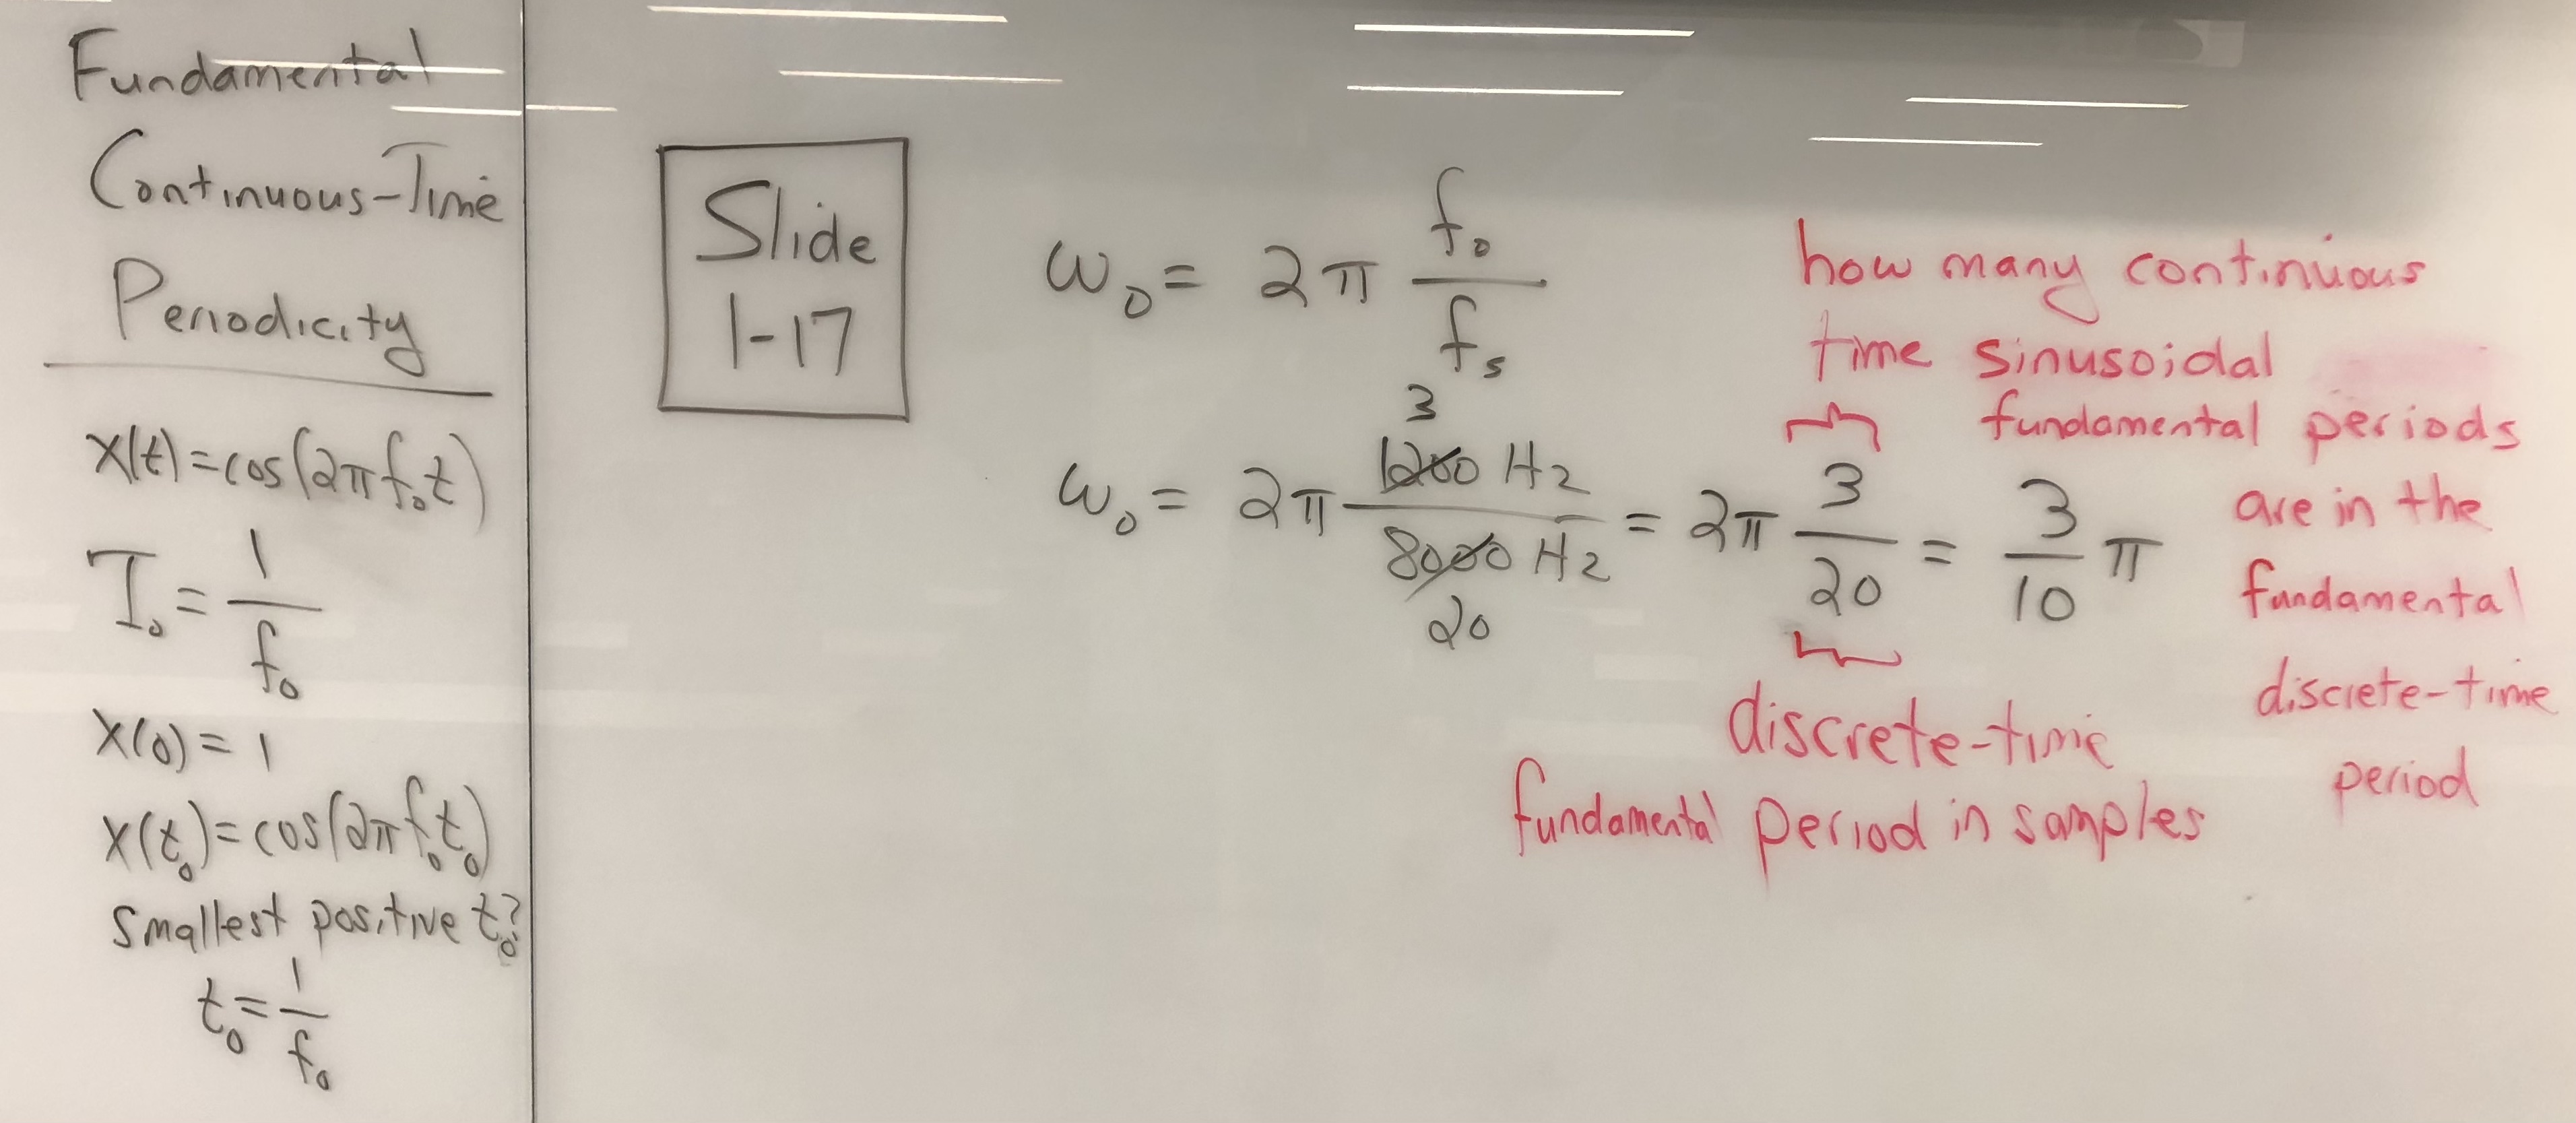 Fundamental
Continuous-Time
Periodicity
x(t) = cos(2π f₀ t)
T₀ = 1/f₀
x(0) = 1
x(t₀) = cos(2π f₀ t₀)
Smallest positive t₀?
t₀ = 1/f₀
Slide
1-17
ω₀ = 2π f₀/fₛ
3
ω₀ = 2π 1200 Hz/8000 Hz = 2π 3/20 = 3/10 π
20
how many continuous
time sinusoidal
fundamental periods
are in the
fundamental
discrete-time
period
discrete-time
fundamental period in samples